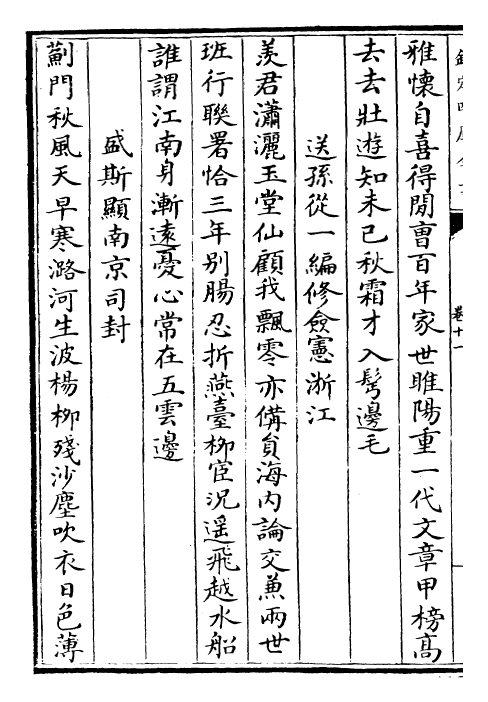 雅懷自喜得閒曹百年家世睢陽重一代文章甲榜髙
去去壯遊知未已秋霜才入髩邊毛
送孫從一編修僉憲浙江
羨君瀟灑玉堂仙顧我飄零亦備貟海内論交兼兩世
班行聯署恰三年别腸忍折燕臺栁宦况遥飛越水船
誰謂江南身漸逺憂心常在五雲邊
盛斯顯南京司封
薊門秋風天早寒潞河生波楊栁殘沙塵吹衣日色薄
卷十一